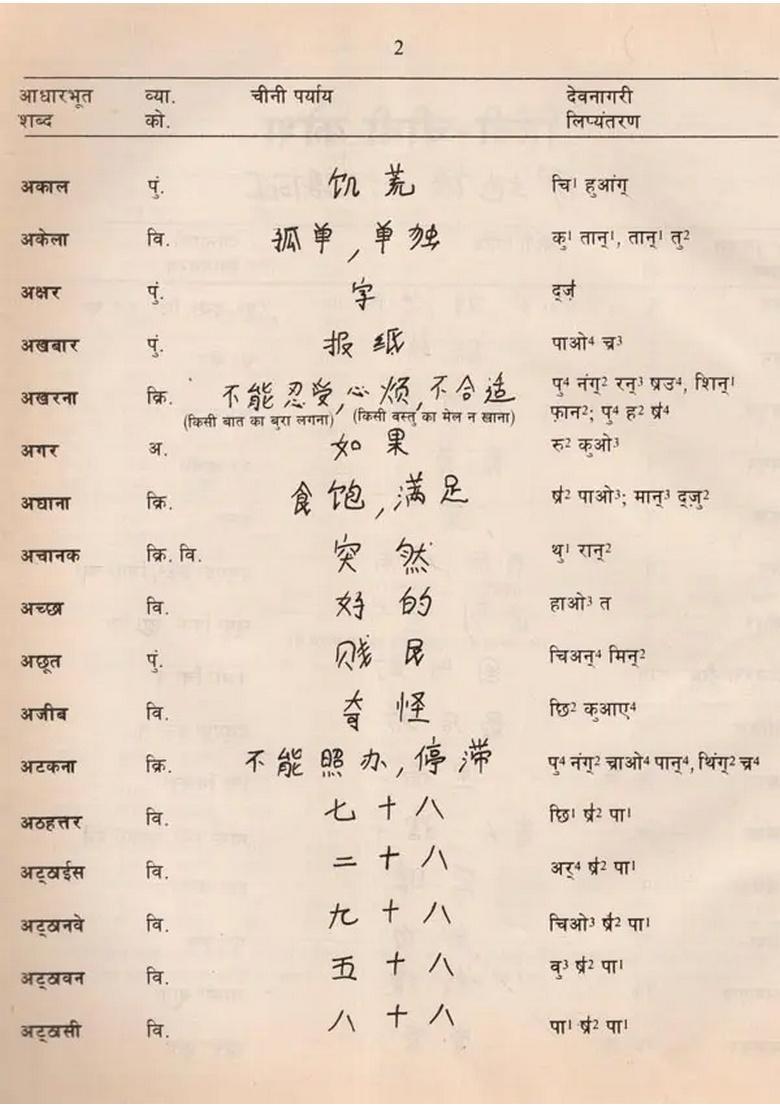 2
आधारभूत व्या. चीनी पर्याय देवनागरी
शब्द को. लिप्यंतरण
अकाल पुं. 饥荒 चि¹ हुआंग्
अकेला वि. 孤单,单独 कु¹ तान्¹, तान्¹ तु²
अक्षर पुं. 字 द्ज़
अखबार पुं. 报纸 पाओ⁴ च्र³
अखरना क्रि. 不能忍受,心烦,不合适 पु⁴ नंग्² रन्³ ष्रउ⁴, शिन्¹
(किसी बात का बुरा लगना) (किसी वस्तु का मेल न खाना) फ़ान²; पु⁴ ह² ष्र⁴
अगर अ. 如果 रु² कुओ³
अघाना क्रि. 食饱,满足 ष्र² पाओ³; मान्³ द्ज़ु²
अचानक क्रि. वि. 突然 थु¹ रान्²
अच्छा वि. 好的 हाओ³ त
अछूत पुं. 贱民 चिअन्⁴ मिन्²
अजीब वि. 奇怪 छि² कुआए⁴
अटकना क्रि. 不能照办,停滞 पु⁴ नंग्² च्राओ⁴ पान्⁴, थिंग्² च्र⁴
अठहत्तर वि. 七十八 छि¹ ष्र² पा¹
अट्ठाईस वि. 二十八 अर्⁴ ष्र² पा¹
अट्ठानवे वि. 九十八 चिओ³ ष्र² पा¹
अट्ठावन वि. 五十八 वु³ ष्र² पा¹
अट्ठासी वि. 八十八 पा¹ ष्र² पा¹